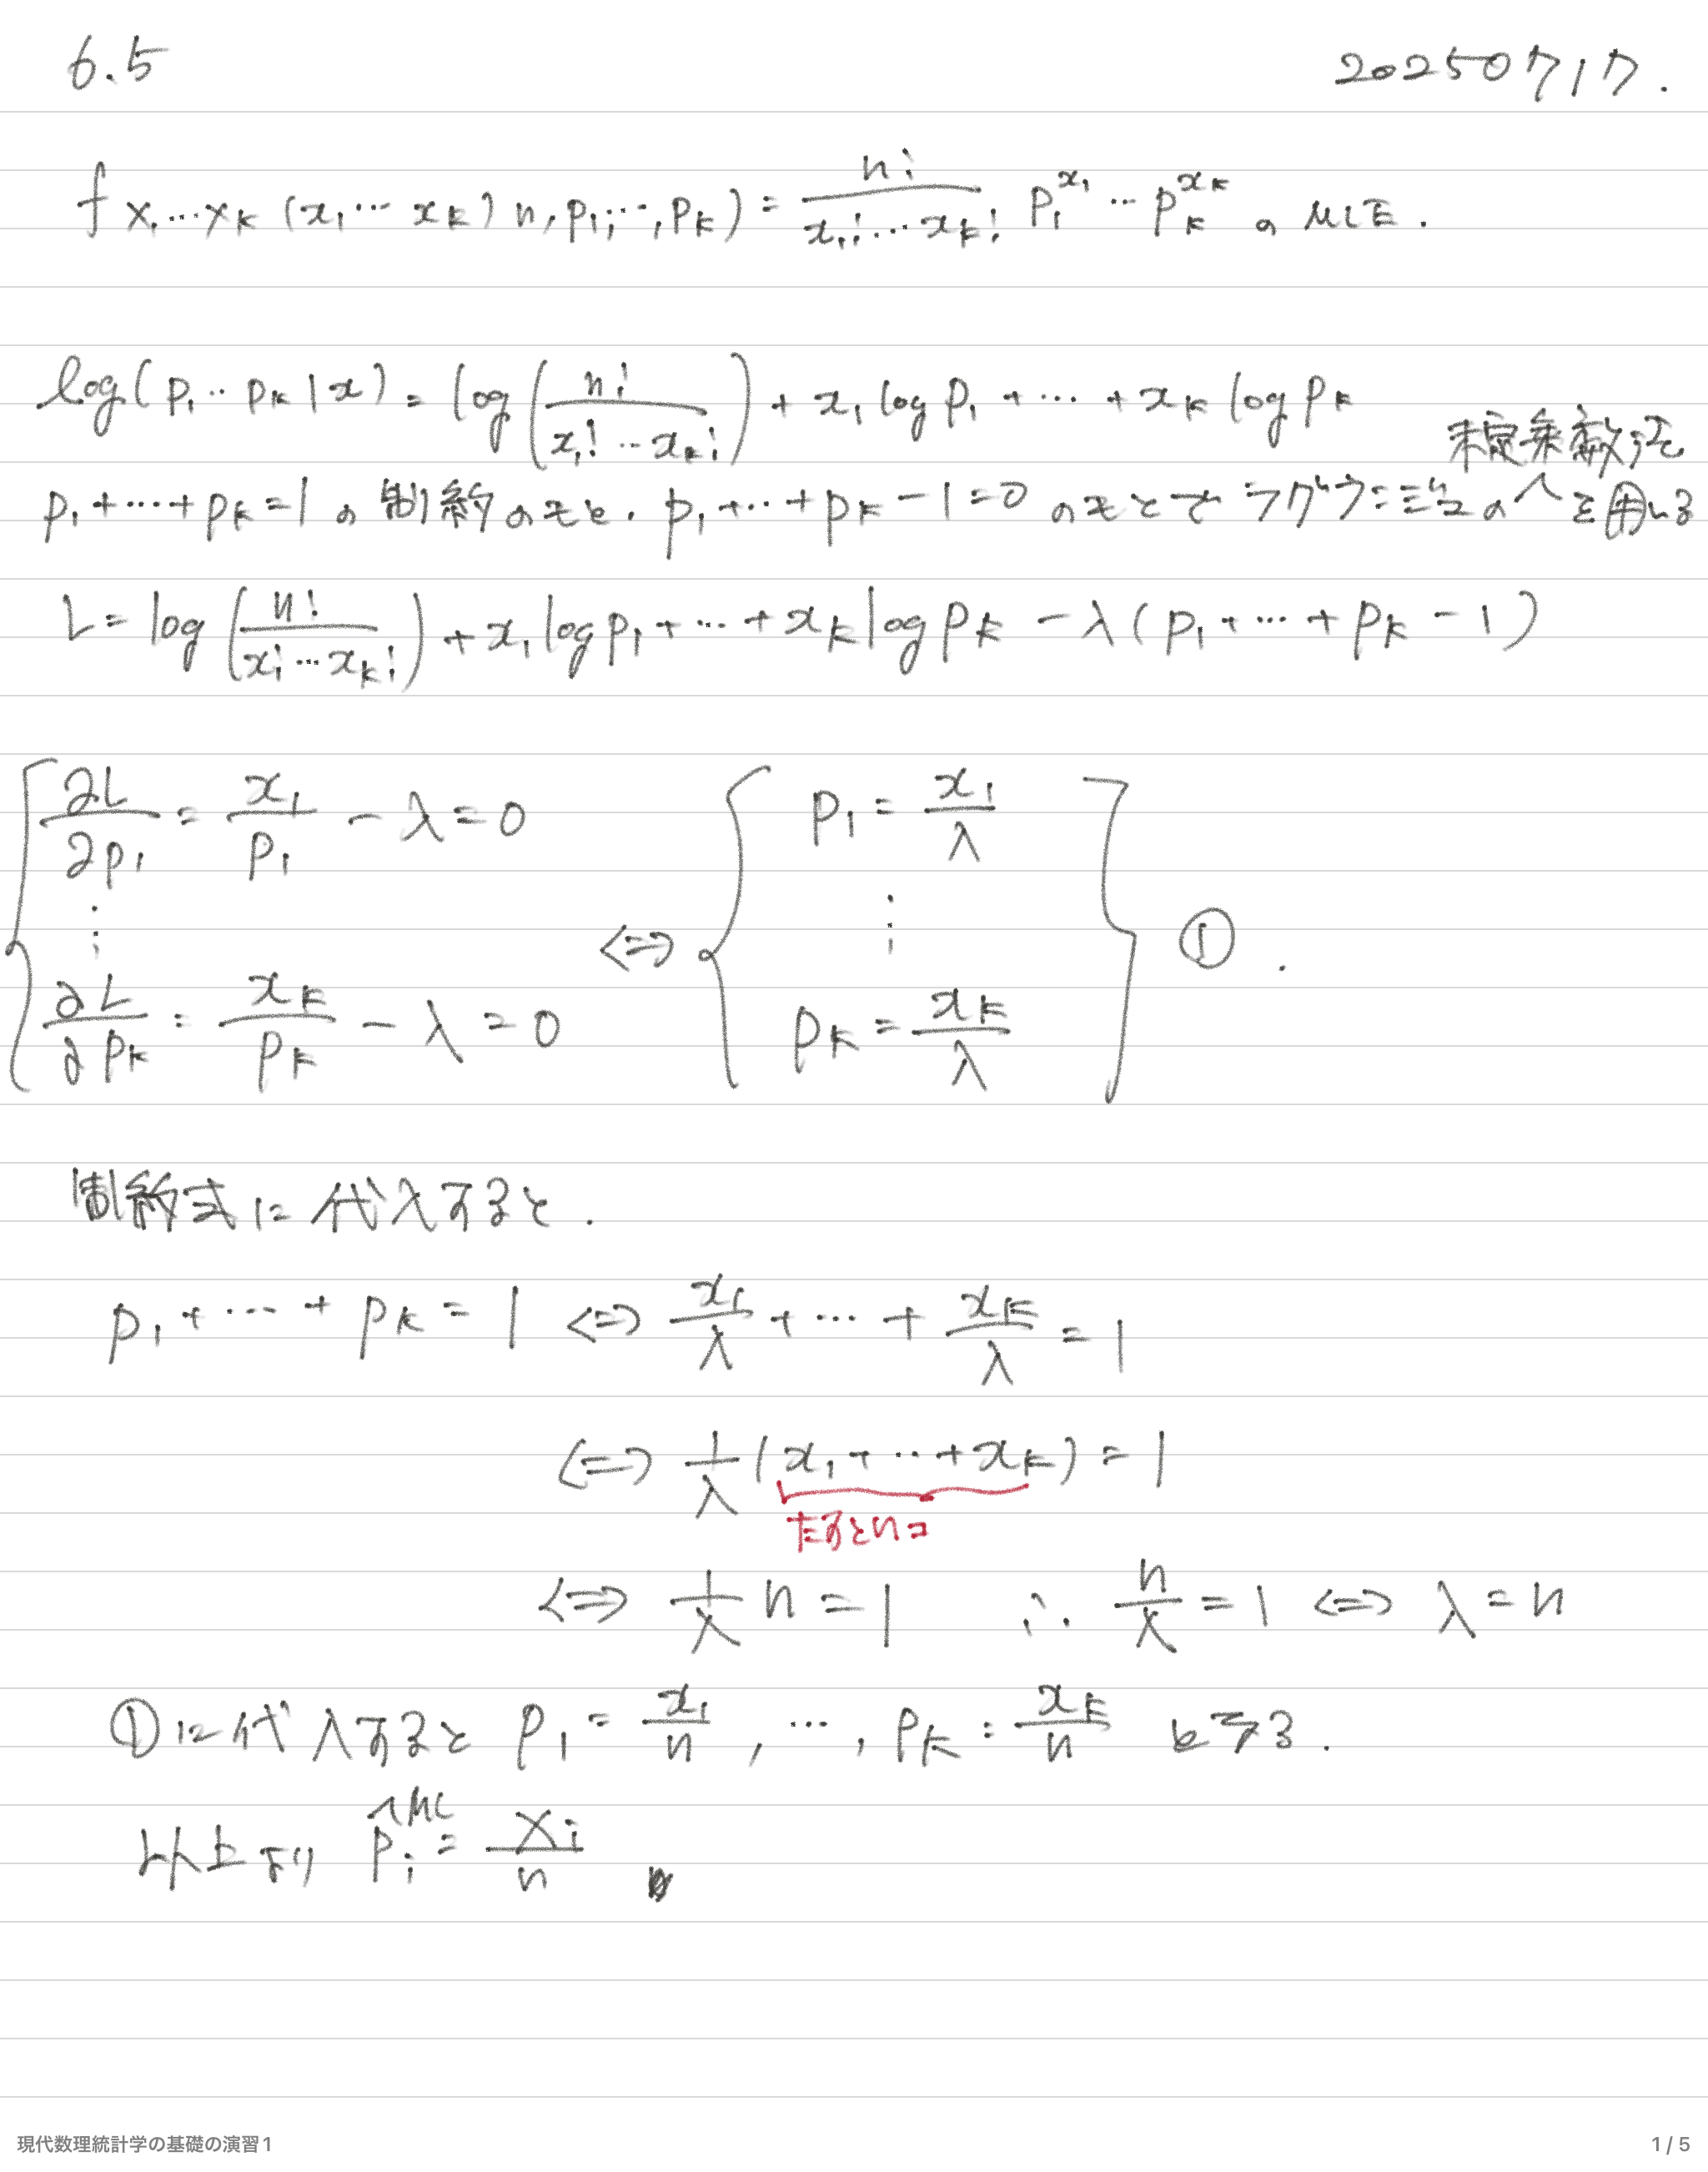 6.5 20250717.
f x₁…x_k (x₁…x_k) n, p₁, …, p_k) = n! / x₁!…x_k! p₁^x₁ … p_k^x_k の MLE.
log(p₁‥p_k|x) = log(n! / x₁!…x_k!) + x₁ log p₁ + … + x_k log p_k
未定乗数法
p₁+…+p_k=1 の制約のもと. p₁+…+p_k−1=0 のもとでラグランジュの を用いる
L = log(n! / x₁!…x_k!) + x₁ log p₁ + … + x_k log p_k − λ(p₁+…+p_k − 1)
{ ∂L/∂p₁ = x₁/p₁ − λ = 0 { p₁ = x₁/λ }
⋮ ⇔ ⋮ ①.
∂L/∂p_k = x_k/p_k − λ = 0 p_k = x_k/λ
制約式に代入すると.
p₁+…+p_k = 1 ⇔ x₁/λ + … + x_k/λ = 1
⇔ 1/λ (x₁+…+x_k) = 1
たすとnコ
⇔ 1/λ n = 1 ∴ n/λ = 1 ⇔ λ = n
①に代入すると p₁ = x₁/n, …, p_k = x_k/n とする.
以上より p̂ᵢ^ML = Xᵢ/n
現代数理統計学の基礎の演習1 1 / 5